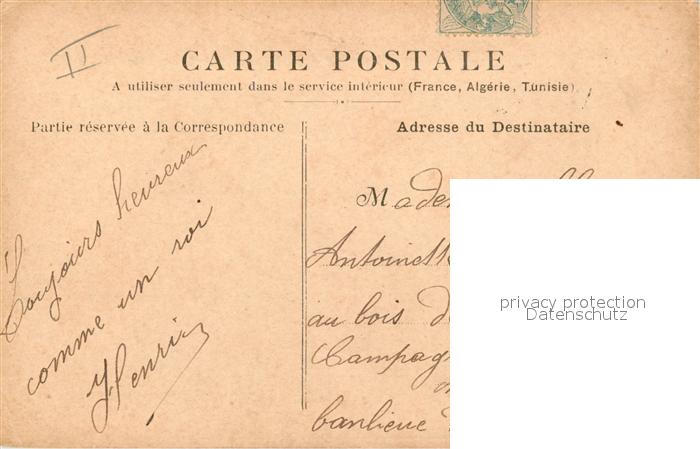 II
CARTE POSTALE
A utiliser seulement dans le service intérieur (France, Algérie, Tunisie)
Partie réservée à la Correspondance
Toujours heureux
comme un roi
Henri
Adresse du Destinataire
Made
Antoinett
au bois d
Campag
banlieue
privacy protection
Datenschutz